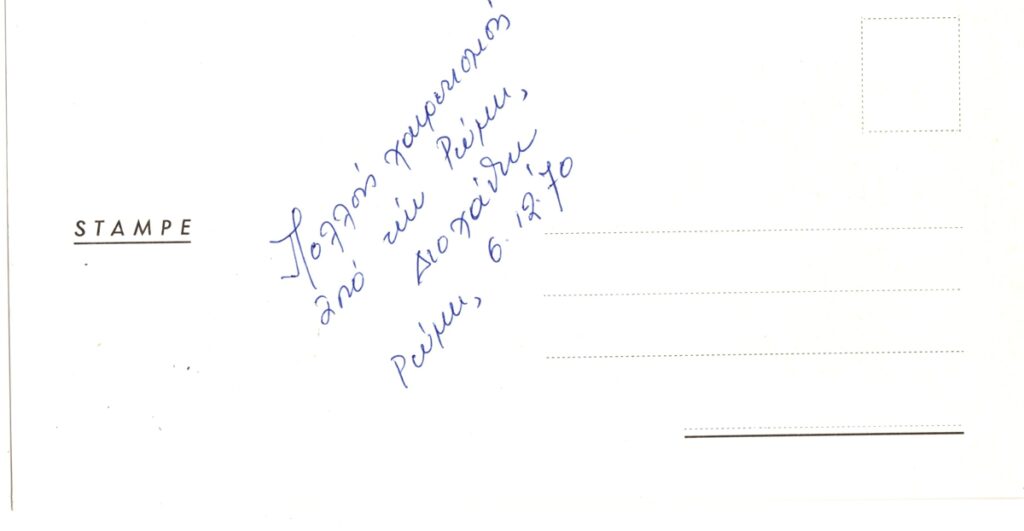 STAMPE
Πολλούς χαιρετισμούς
ἀπό τήν Ρώμη,
Διοχάντη
Ρώμη, 6.12.70